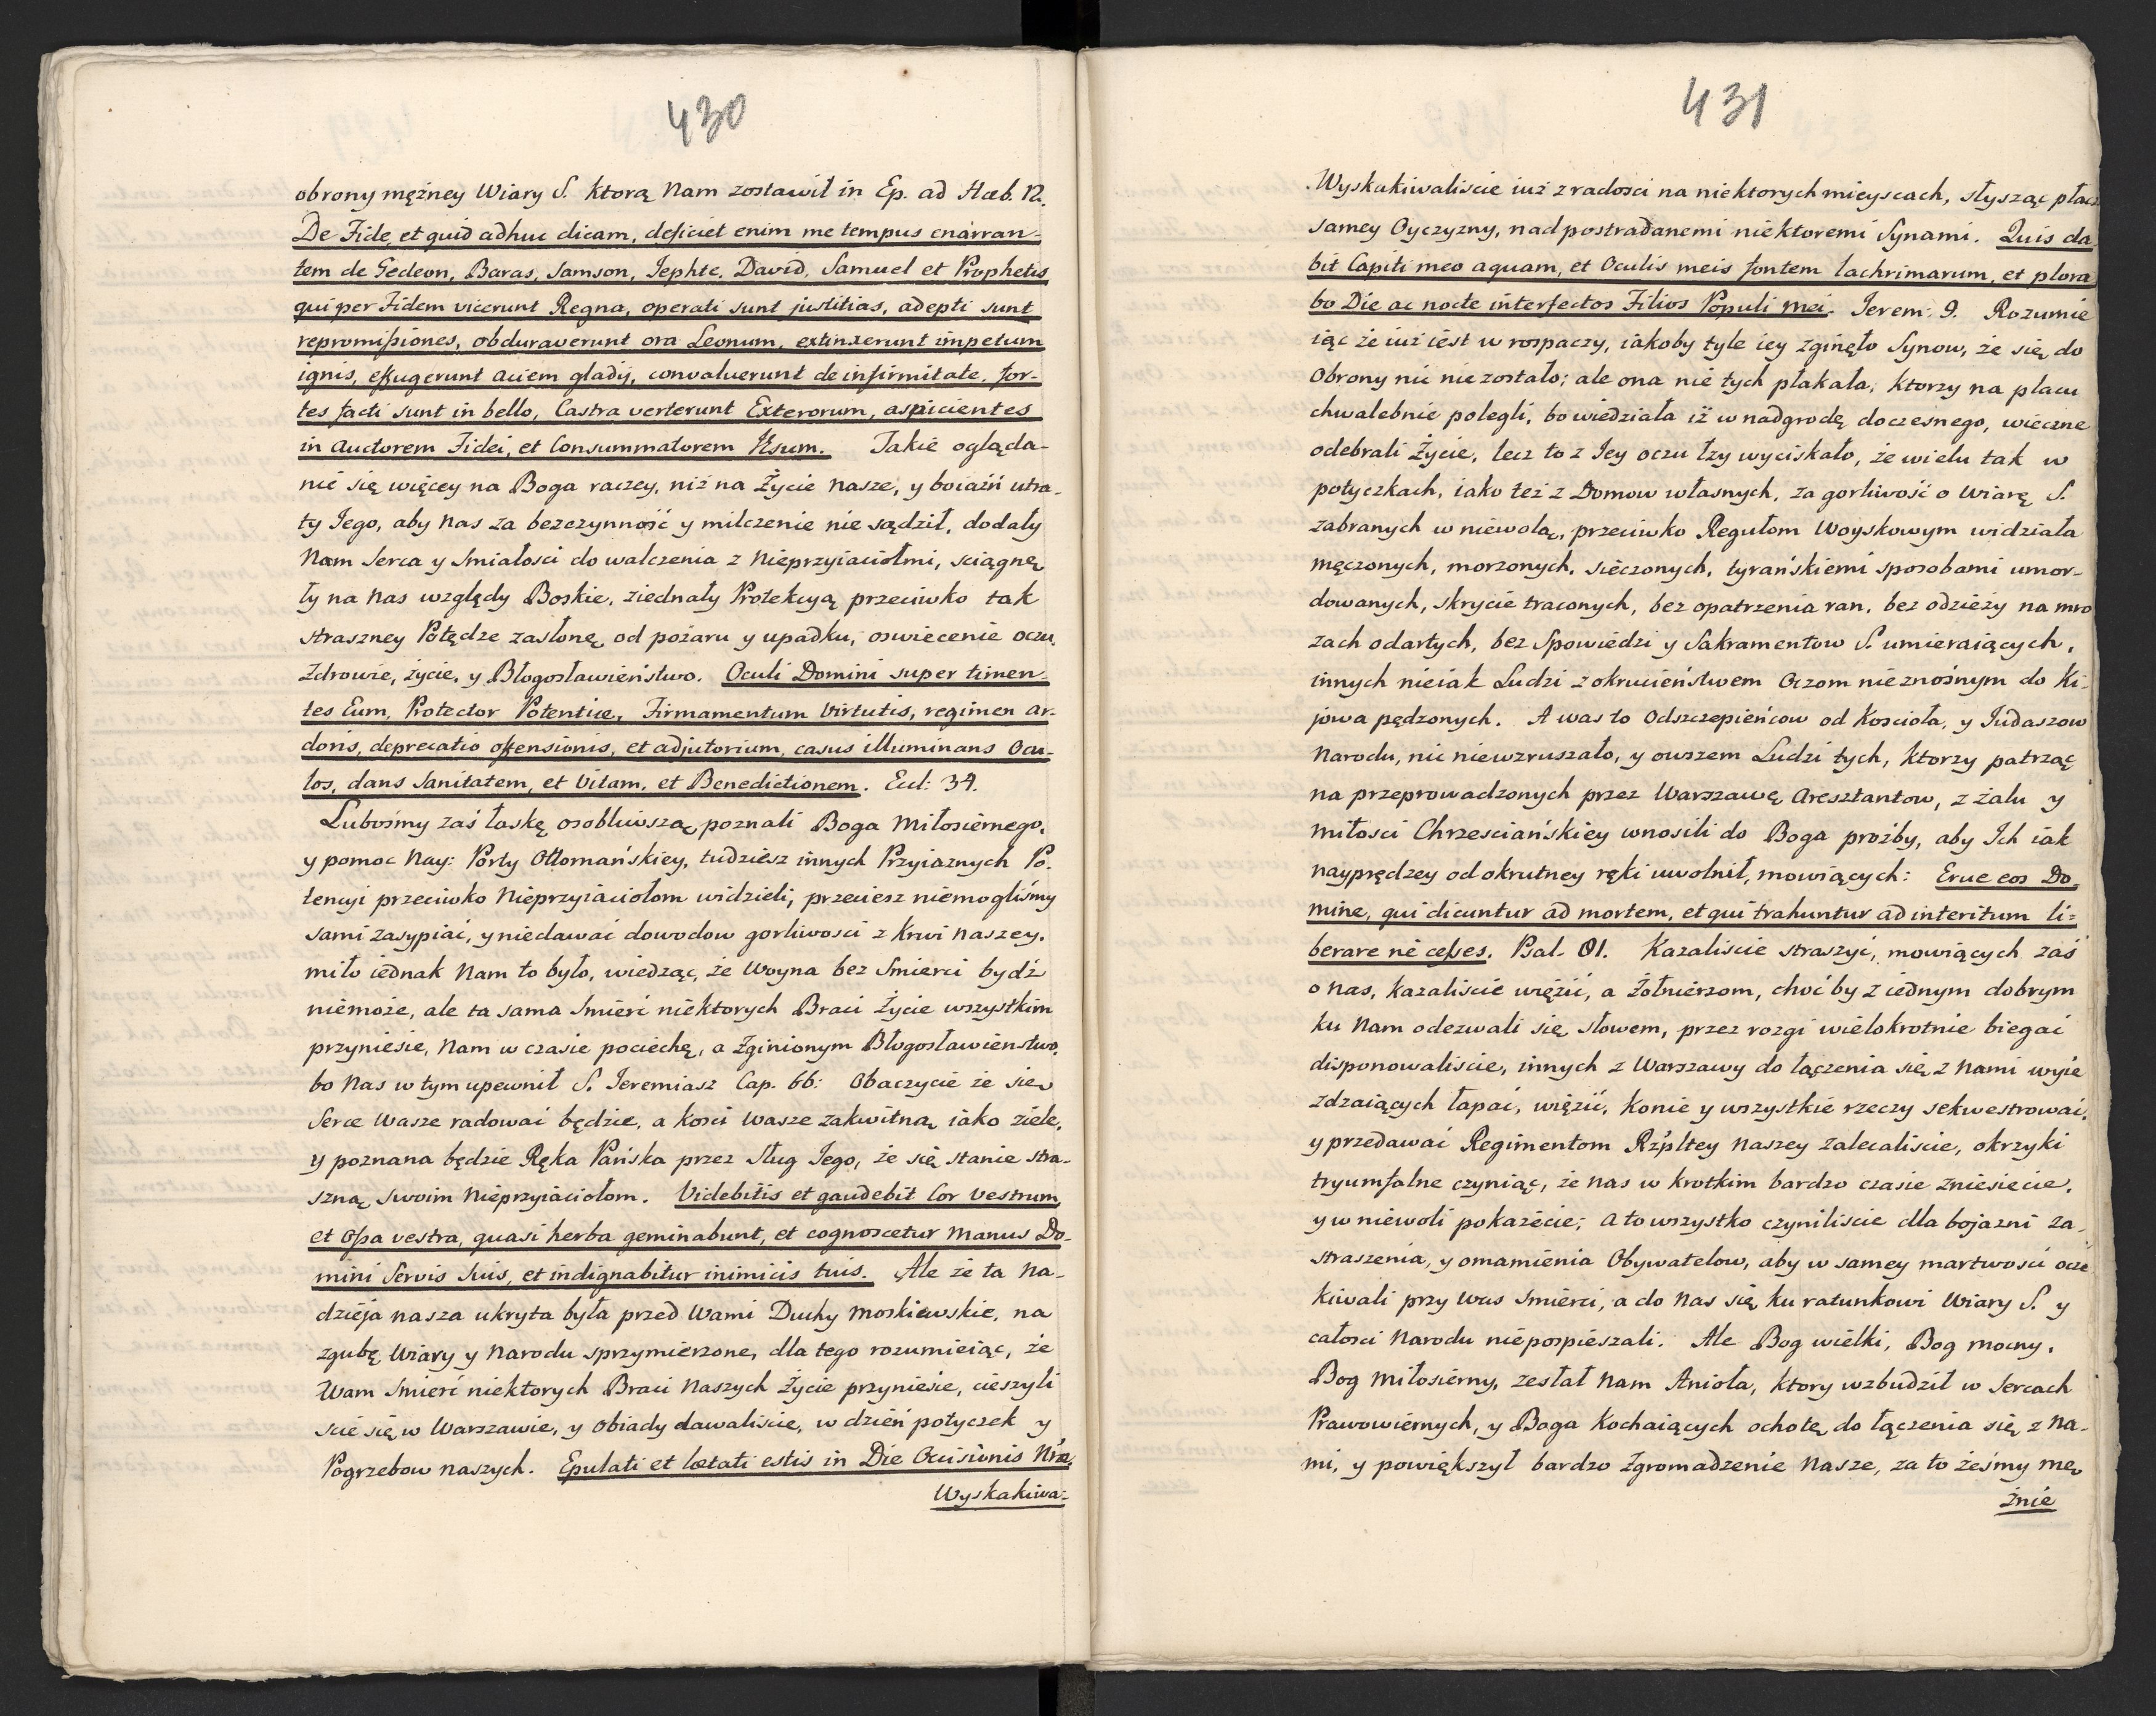 430
obrony mężney Wiary S. ktorą Nam zostawił in Ep. ad Hæb. 12.
De Fide, et quid adhuc dicam, deficiet enim me tempus enarran-
tem de Gedeon, Baras, Samson, Jephte, David, Samuel et Prophetis
qui per Fidem vicerunt Regna, operati sunt justitias, adepti sunt
repromissiones, obduraverunt ora Leonum, extinxerunt impetum
ignis, effugerunt aciem gladij, convaluerunt de infirmitate, for-
tes facti sunt in bello, Castra verterunt Exterorum, aspicientes
in Auctorem Fidei, et Consummatorem Jesum. Takie ogląda-
nie się więcey na Boga raczey, niż na Życie nasze, y boiaźń utra-
ty Jego, aby nas za bezczynność y milczenie nie sądził, dodały
Nam Serca y Smiałosci do walczenia z Nieprzyiaciołmi, sciągnę-
ły na nas względy Boskie, ziednały Protekcyą przeciwko tak
straszney Potędze zasłonę, od pożaru y upadku, oswiecenie oczu,
Zdrowie, życie, y Błogosławieństwo. Oculi Domini super timen-
tes Eum, Protector Potentiæ, Firmamentum Virtutis, regimen ar-
doris, deprecatio offensionis, et adjutorium, casus illuminans Ocu-
los, dans Sanitatem, et Vitam, et Benedictionem. Eccl: 34.
Lubośmy zaś łaskę osobliwszą poznali Boga Miłosiernego,
y pomoc Nay: Porty Ottomańskiey, tudziesz innych Przyiaznych Po-
tencyi przeciwko Nieprzyiaciołom widzieli, przeciesz niemogliśmy
sami zasypiać, y niedawać dowodow gorliwosci z Krwi Naszey.
miło iednak Nam to było, wiedząc, że Woyna bez Smierci bydź
niemoże, ale ta sama Smierć niektorych Braci Życie wszystkim
przyniesie, Nam w czasie pociechę, a Zginionym Błogosławieństwo,
bo Nas w tym upewnił S. Jeremiasz Cap. 66: Obaczycie że się
Serce Wasze radować będzie, a kosci Wasze zakwitną iako ziele,
y poznana będzie Ręka Pańska przez Sług Jego, że się stanie stra-
szną swoim Nieprzyiaciołom. Videbitis et gaudebit Cor vestrum
et Ossa vestra, quasi herba geminabunt, et cognoscetur Manus Do-
mini Servis Suis, et indignabitur inimicis tuis. Ale że ta Na-
dzieja nasza ukryta była przed Wami Duchy Moskiewskie, na
zgubę Wiary y Narodu sprzymierzone, dla tego rozumieiąc, że
Wam Smierć niektorych Braci Naszych Życie przyniesie, cieszyli
scie się w Warszawie, y Obiady dawaliscie, w dzień potyczek y
Pogrzebow naszych. Epulati et lætati estis in Die Occisionis Nræ.
Wyskakiwa-
431
Wyskakiwaliscie iuż z radosci na niektorych mieyscach, słysząc płacz
samey Oyczyzny, nad postradanemi niektoremi Synami. Quis da
bit Capiti meo aquam, et Oculis meis fontem lachrimarum, et plora
bo Die ac nocte interfectos Filios Populi Mei. Jerem: 9. Rozumie
iąc że iuż iest w rospaczy, iakoby tyle iey zginęło Synow, że się do
Obrony nic nie zostało; ale ona nie tych płakała, ktorzy na placu
chwalebnie polegli, bo wiedziała iż w nadgrodę doczesnego, wieczne
odebrali Życie, lecz to z Jey oczu łzy wyciskało, że wielu tak w
potyczkach, iako też z Domow własnych, za gorliwość o Wiarę S.
zabranych w niewolą, przeciwko Regułom Woyskowym widziała
męczonych, morzonych, sieczonych, tyrańskiemi sposobami umor-
dowanych, skrycie traconych, bez opatrzenia ran, bez odzieży na mro
zach odartych, bez Spowiedzi y Sakramentow S. umieraiących,
innych nieiak Ludzi z okrucieństwem Oczom nieznośnym do Ki-
jowa pędzonych. A was to Odszczepieńcow od Koscioła, y Judaszow
Narodu, nic niewzruszało, y owszem Ludzi tych, ktorzy patrząc
na przeprowadzonych przez Warszawę Aresztantow, z żalu y
miłosci Chrzesciańskiey wnosili do Boga proźby, aby Ich iak
nayprędzey od okrutney ręki uwolnił, mowiących: Erue eos Do-
mine, qui dicuntur ad mortem, et qui trahuntur ad interitum li-
berare ne cesses. Psal. 81. Kazaliscie straszyć, mowiących zaś
o nas, kazaliscie więzić, a Żołnierzom, choć by z iednym dobrym
ku Nam odezwali się słowem, przez rozgi wielokrotnie biegać
disponowaliscie, innych z Warszawy do łączenia się z Nami wyie
zdzaiących łapać, więzić, Konie y wszystkie rzeczy sekwestrować,
y przedawać Regimentom Rzpltey Naszey zalecaliscie, okrzyki
tryumfalne czyniąc, że nas w krotkim bardzo czasie zniesiecie,
y w niewoli pokażecie; A to wszystko czyniliscie dla bojazni za-
straszenia, y omamienia Obywatelow, aby w samey martwosci ocze
kiwali przy was Smierci, a do Nas się ku ratunkowi Wiary S. y
całosci Narodu niepospieszali. Ale Bog wielki, Bog mocny,
Bog Miłosierny, zesłał Nam Anioła, ktory wzbudził w Sercach
Prawowiernych, y Boga kochaiących ochotę do łączenia się z Na-
mi, y powiększył bardzo Zgromadzenie Nasze, za to żeśmy mę
żnie